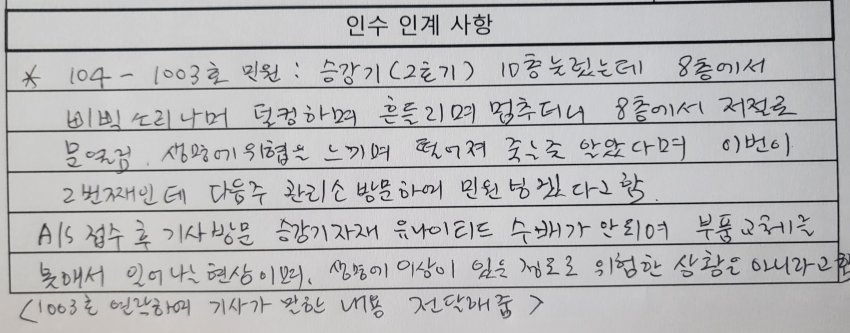 인수 인계 사항
* 104 - 1003호 민원 : 승강기(2호기) 10층눌렀는데 8층에서
삐빅소리나며 덜컹하며 흔들리며 멈추더니 8층에서 저절로
문열림. 생명에위협을 느끼며 떨어져 죽는줄 알았다며 이번이
2번째인데 다음주 관리소방문하여 민원넣겠다고함.
A/S 접수 후 기사방문 승강기자재 유나이티드 수배가 안되여 부품교체를
못해서 일어나는현상이며, 생명에이상이 있을 정도로 위험한 상황은아니라고함
<1003호 연락하여 기사가 말한 내용 전달해줌>